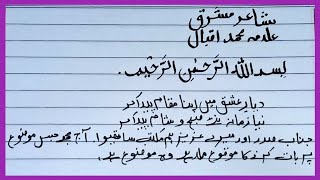 شاعر مشرق
علامہ محمد اقبال
بسم الله الرَّحمٰنِ الرَّحیم.
دیارِ عشق میں اپنا مقام پیدا کر
نیا زمانہ نئے صبح و شام پیدا کر
جناب صدر اور میرے عزیز ہم مکتب ساتھیو! آج مجھے جس موضوع
پر بات کرنے کا موقع ملا ہے وہ موضوع ہے